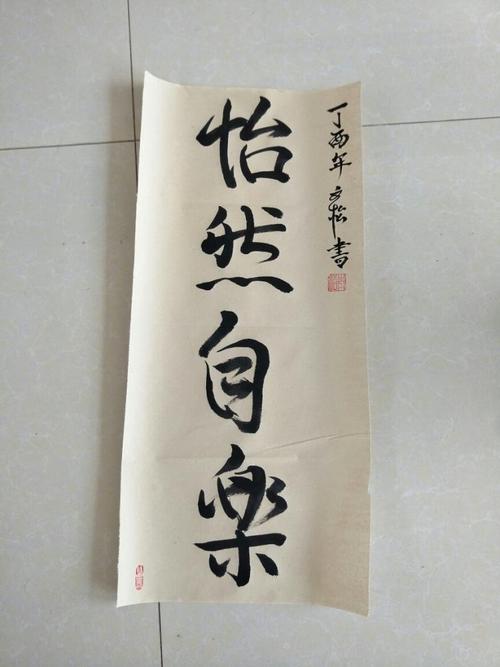 丁酉年 文怡書
怡然自樂